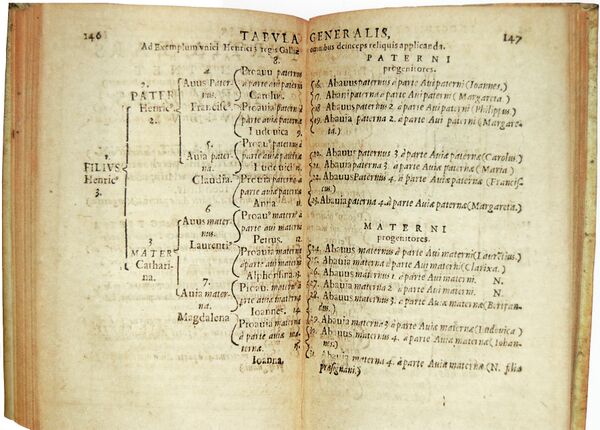 146
TABVLA GENERALIS,
147
Ad Exemplum vnici Henrici 3 regis Galliæ
omnibus deinceps reliquis applicanda.
1.
FILIVS
Henricꝰ
3.
2.
PATER
Henricꝰ
2.
3
MATER
Cathari-
na.
4
Auus Pater
nus.
Franciscꝰ
5.
Auia pater-
na.
Claudia.
6.
Auus mater-
nus.
Laurentiꝰ
7.
Auia mater-
na.
Magdalena
8.
Proauꝰ paternꝰ
à parte aui paterni
Carolus.
Proauia paterna
à parte aui paterni
Luduuica 9.
Proauꝰ paternus
à parte auiæ paternæ
Proauia paterna
à parte auiæ paternæ
Anna
Proauꝰ maternꝰ
à parte aui materni
Petrus.
Proauia materna
à parte aui materni
Alphonsina
Proau. maternꝰ
à parte auiæ maternæ
Ioannes. 14
Proauia materna
à parte auiæ ma-
ternæ.
Ioanna.
PATERNI
progenitores.
16. Abauus paternus à parte Aui paterni (Ioannes.)
17. Abauia paterna à parte Aui paterni (Margareta.)
18. Abauus paternus 2. à parte Aui paterni (Philippus)
19. Abauia paterna 2. à parte Aui paterni (Margare-
ta.)
20. Abauus paternus 3. à parte Auiæ paternæ (Carolus.)
21. Abauia paterna 3. à parte Auiæ paternæ (Maria)
22. Abauus Paternus 4. à parte Auiæ paternæ (Francis-
cus)
23. Abauia paterna 4. à parte Auiæ paternæ (Margareta.)
MATERNI
progenitores.
24. Abauus maternus à parte Aui materni (Laurētius.)
25. Abauia materna à parte Aui materni (Clarixa.)
26. Abauus maternus 2 à parte Aui materni. N.
27. Abauia materna 2 à parte Aui materni. N.
28. Abauus maternus 3. à parte Auiæ maternæ (Bertran-
dus.)
29. Abauia materna 3 à parte Auiæ maternæ (Ludouica)
30. Abauus maternus 4. à parte Auiæ maternæ (Iohan-
nes.)
31. Abauia materna 4. à parte Auiæ maternæ (N. filia
præsignani.)